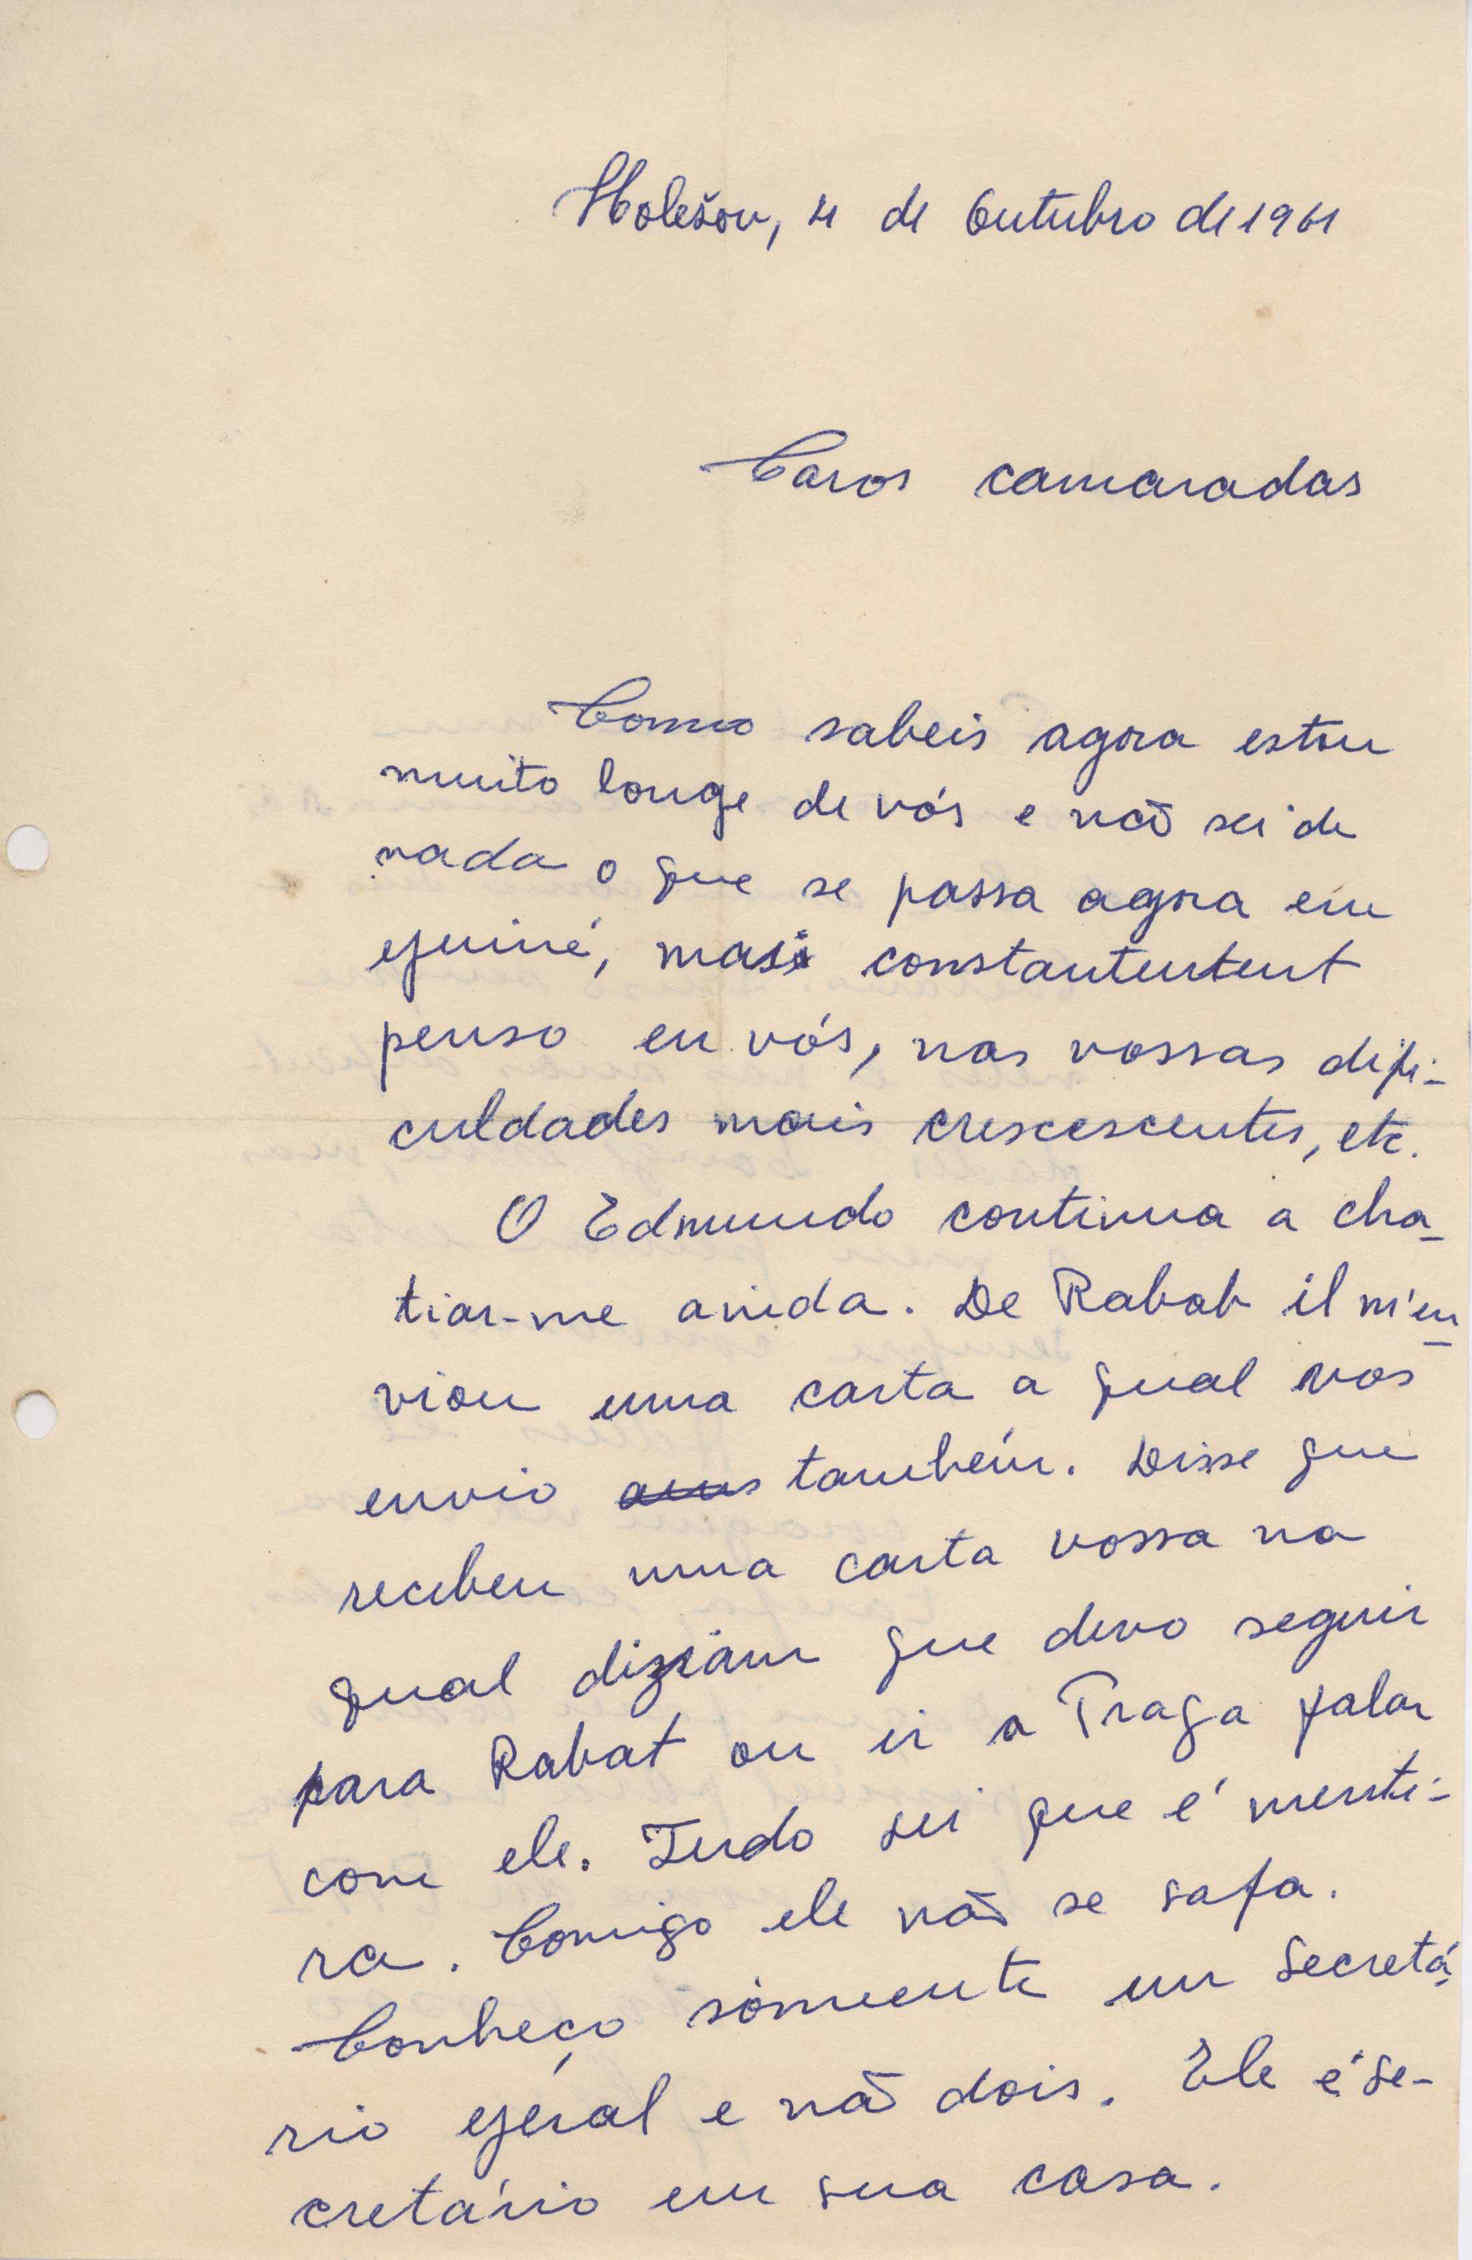 Holešov, 4 de Outubro de 1961
Caros camaradas
Como sabeis agora estou
muito longe de vós e não sei de
nada o que se passa agora em
Guiné, mas constantentent
penso em vós, nas vossas difi-
culdades mais crescescentes, etc.
O Edmundo continua a cha-
tiar-me ainda. De Rabat il m'en-
viou uma carta a qual vos
envio também. Disse que
recebeu uma carta vossa na
qual diziam que devo seguir
para Rabat ou ir a Praga falar
com ele. Tudo sei que é menti-
ra. Comigo ele não se safa.
Conheço sòmente um Secretá-
rio Geral e não dois. Ele é Se-
cretário em sua casa.